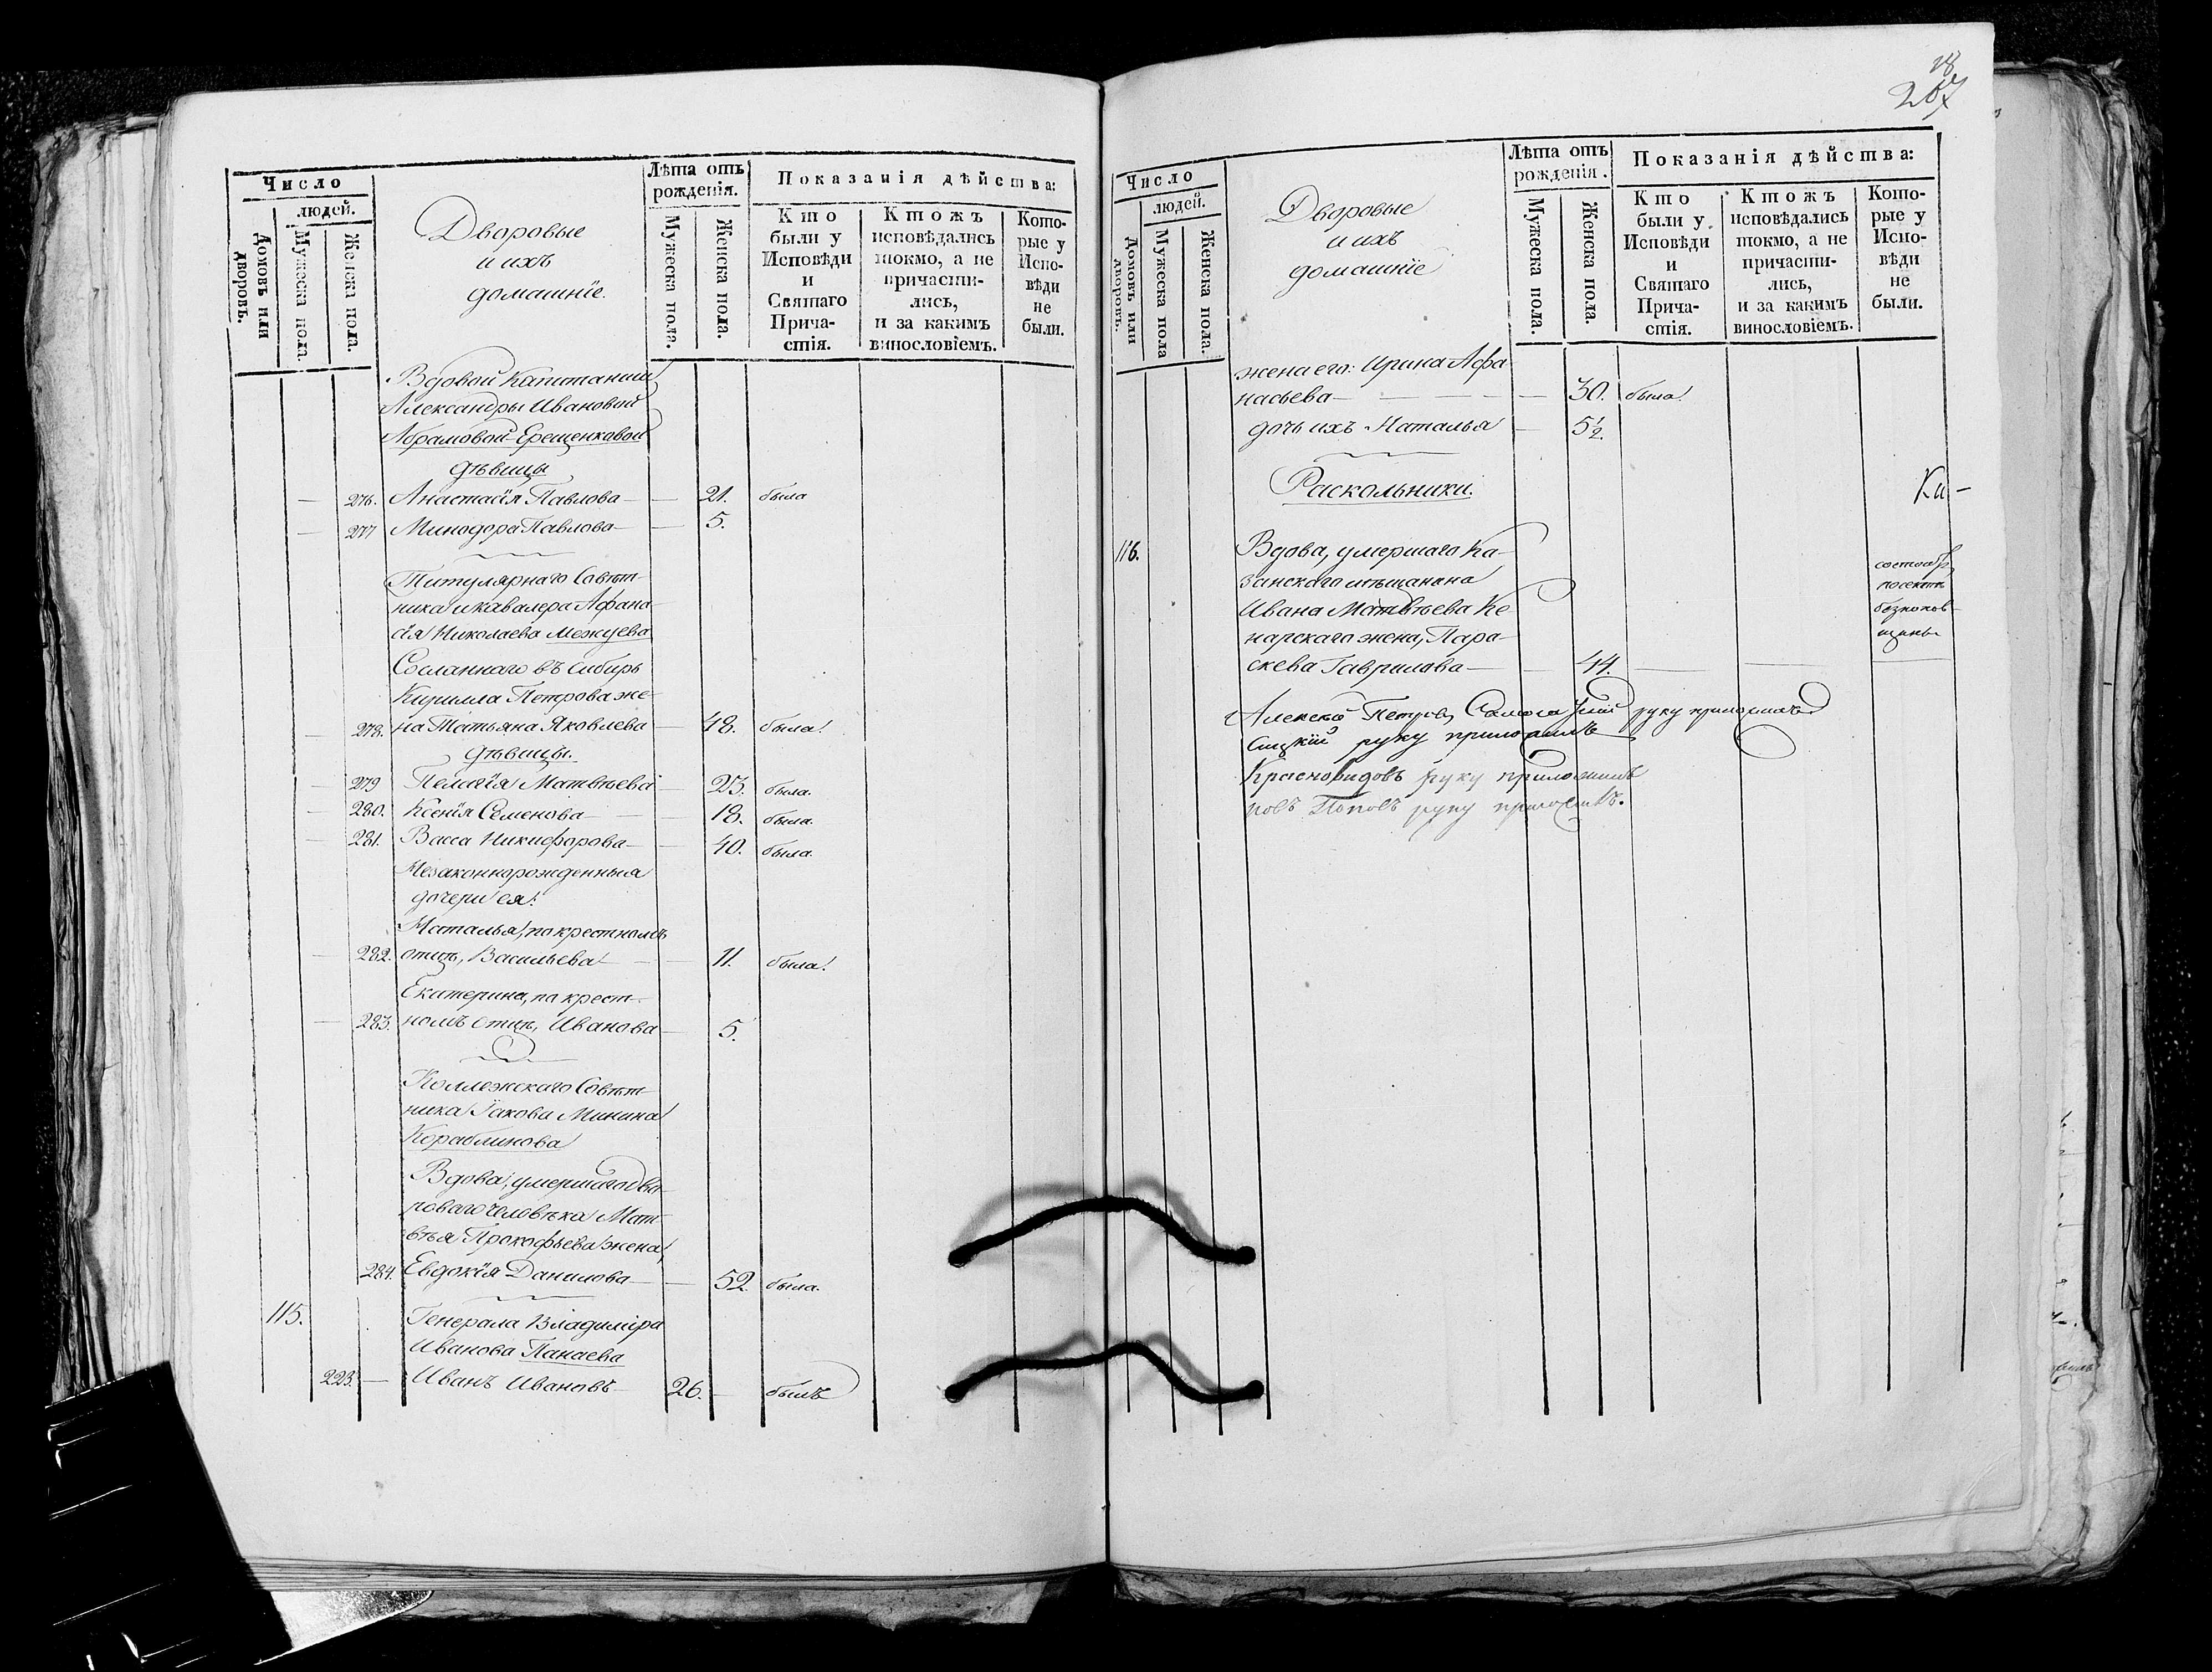 Число
людей.
Домовъ или дворовъ.
Мужеска пола.
Женска пола.
Дворовые
и ихъ
домашнїе.
Лѣта отъ
рожденія.
Мужеска пола.
Женска пола.
Показанія дѣйства:
Кто
были у
Исповѣди
и
Святаго
Прича-
стія.
Ктожъ
исповѣдались
токмо, а не
причасти-
лись,
и за какимъ
винословіемъ.
Кото-
рые у
Испо-
вѣди
не
были.
Вдовой Капитанши
Александры Ивановой
Абрамовой-Ерещенковой
дѣвицы
276. Анастасїя Павлова 21. была
277 Минодора Павлова 5.
Титулярнаго Совѣт-
ника и кавалера Афана-
сїя Николаева Межуева
Сосланнаго въ Сибирь
Кирилла Петрова же-
278. на Татьяна Яковлева 48. была
дѣвицы.
279 Пелагїя Матвѣева 23. была.
280. Ксенїя Семенова 18. была
281. Васса Никифорова 40. была.
Незаконнорожденныя
дочери ея:
Наталья, по крестномъ
282. отцѣ, Васильева 11. была
Екатерина, по крест-
283. номъ отцѣ, Иванова 5.
Коллежскаго Совѣт-
ника Іакова Минина
Кораблинова
Вдова, умершаго дво-
роваго человѣка Мат-
вѣя Прокофьева жена,
284. Евдокїя Данилова 52. была.
115. Генерала Владимїра
Иванова Панаева
223. Иванъ Ивановъ 26. былъ
18
267
Число
людей.
Домовъ или дворовъ.
Мужеска пола
Женска пола.
Дворовые
и ихъ
домашнїе
Лѣта отъ
рожденія.
Мужеска пола.
Женска пола.
Показанія дѣйства:
Кто
были у
Исповѣди
и
Святаго
Прича-
стія.
Ктожъ
исповѣдались
токмо, а не
причасти-
лись,
и за какимъ
винословіемъ.
Кото-
рые у
Испо-
вѣди
не
были.
жена его: Ирина Афа
насьева 30. была
дочь ихъ Наталья 5½.
Раскольники.
116. Вдова, умершаго Ка-
занскаго мѣщанина
Ивана Матвѣева Ке
нарскаго жена, Пара-
скева Гаврилова 44.
безпопов-
щины
Алексѣй Петровъ руку приложилъ
руку приложилъ
Красновидовъ руку приложилъ
ровъ Поповъ руку приложилъ.